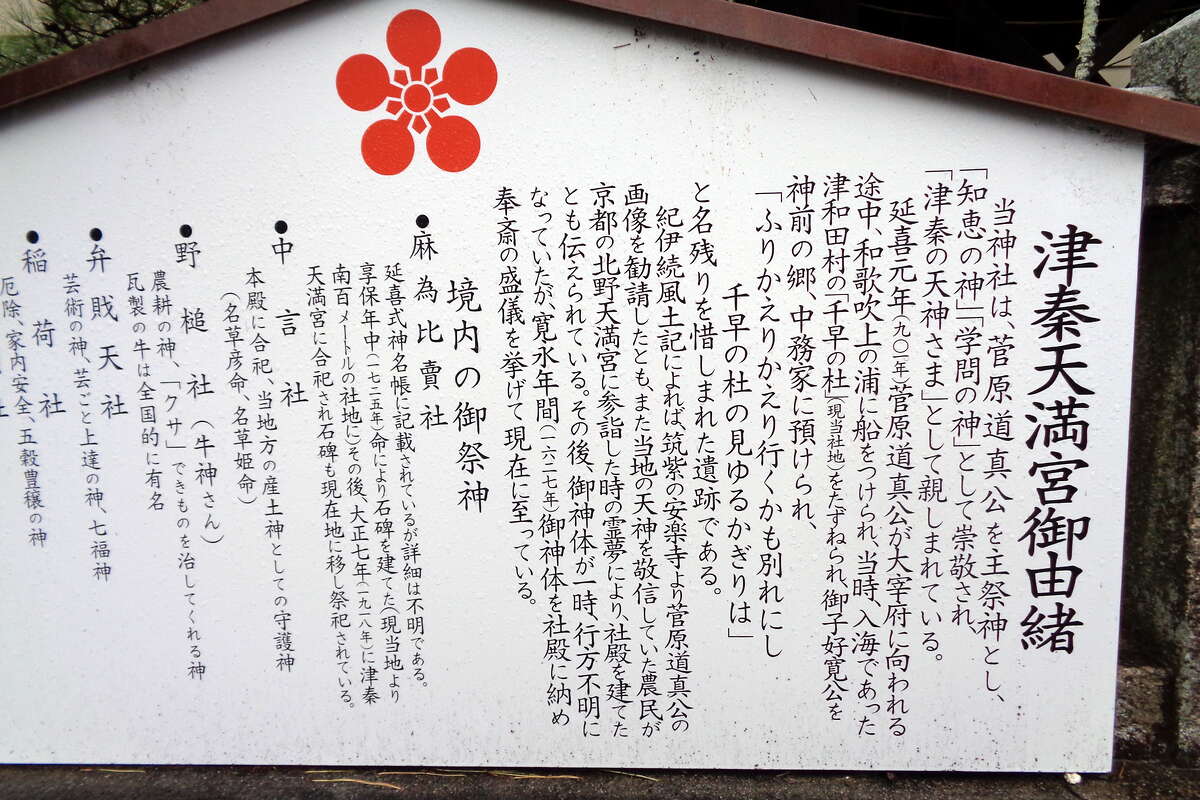 津秦天満宮御由緒
当神社は、菅原道真公を主祭神とし、
「知恵の神」「学問の神」として崇敬され、
「津秦の天神さま」として親しまれている。
延喜元年(九〇一年)菅原道真公が大宰府に向われる
途中、和歌吹上の浦に船をつけられ、当時、入海であった
津和田村の「千早の杜」(現当社地)をたずねられ、御子好寛公を
神前の郷、中務家に預けられ、
「ふりかえりかえり行くかも別れにし
千早の杜の見ゆるかぎりは」
と名残りを惜しまれた遺跡である。
紀伊続風土記によれば、筑紫の安楽寺より菅原道真公の
画像を勧請したとも、また当地の天神を敬信していた農民が
京都の北野天満宮に参詣した時の霊夢により、社殿を建てた
とも伝えられている。その後、御神体が一時、行方不明に
なっていたが、寛永年間(一六二七年)御神体を社殿に納め
奉斎の盛儀を挙げて現在に至っている。
境内の御祭神
●麻為比賣社
延喜式神名帳に記載されているが詳細は不明である。
享保年中(一七二五年)命により石碑を建てた(現当地より
南百メートルの社地)その後、大正七年(一九一八年)に津秦
天満宮に合祀され石碑も現在地に移し祭祀されている。
●中言社
本殿に合祀、当地方の産土神としての守護神
(名草彦命、名草姫命)
●野槌社(牛神さん)
農耕の神、「クサ」できものを治してくれる神
瓦製の牛は全国的に有名
●弁戝天社
芸術の神、芸ごと上達の神、七福神
●稲荷社
厄除、家内安全、五穀豊穣の神